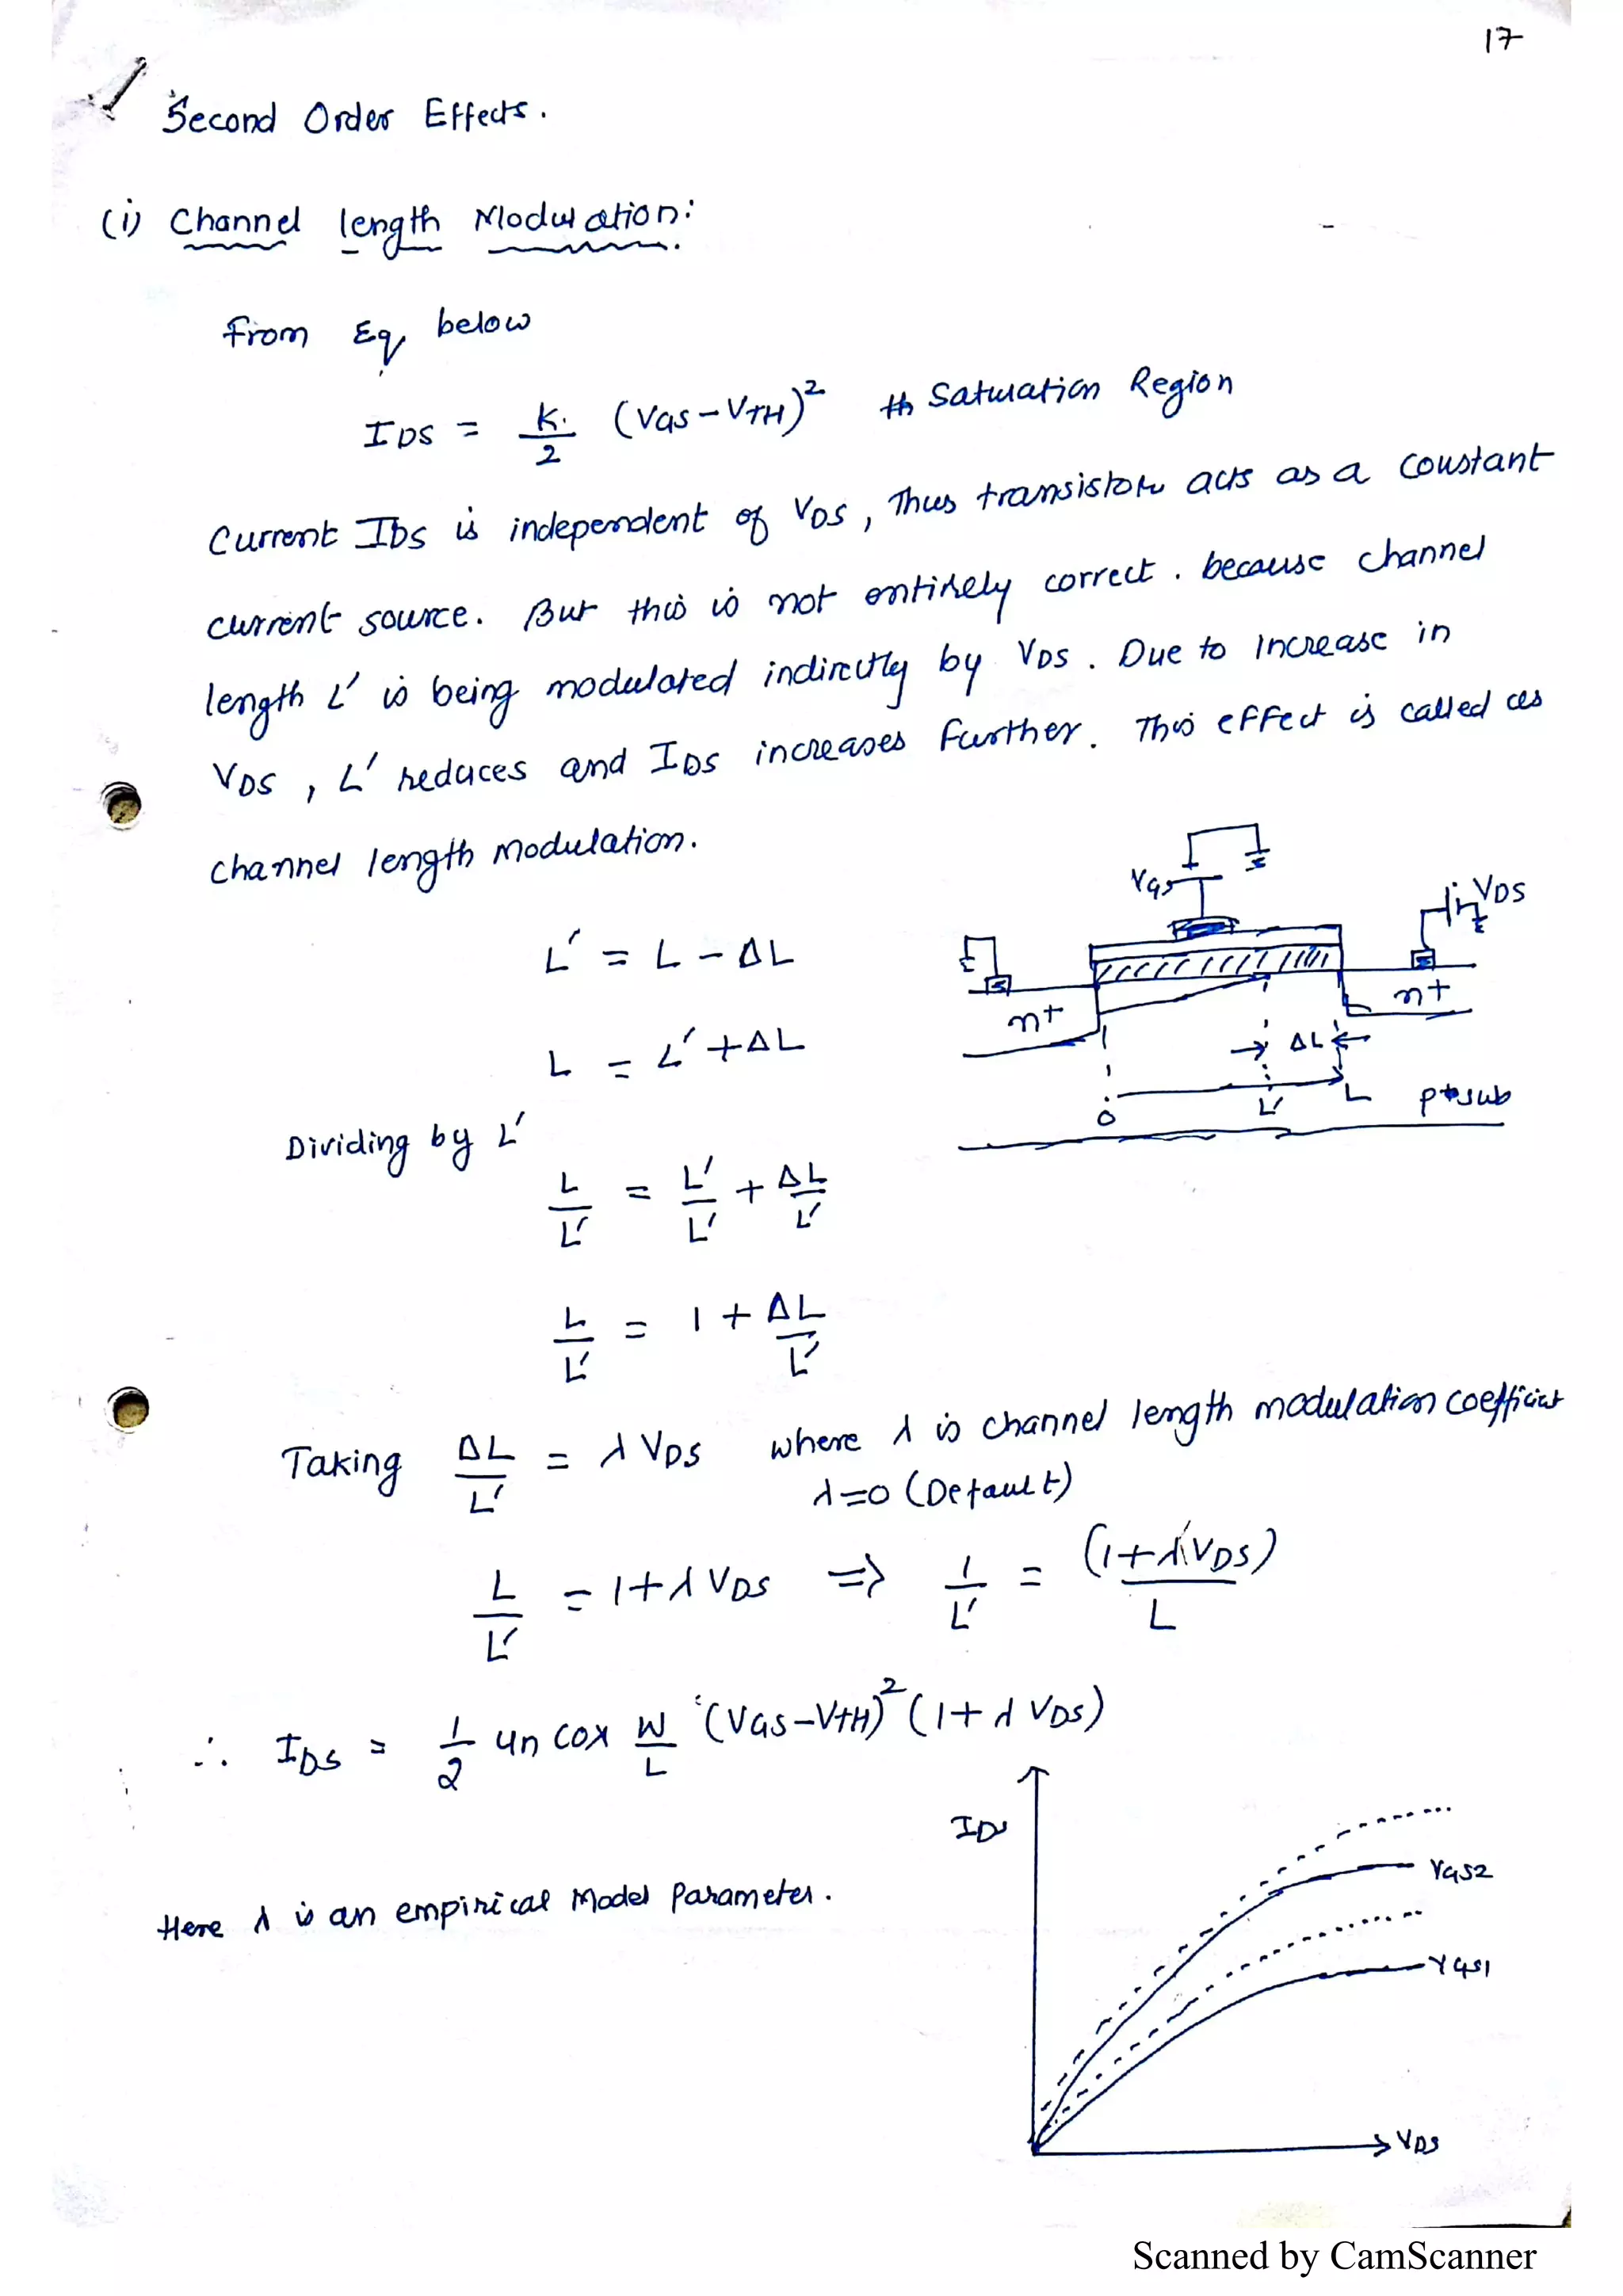 17
Second Order Effects.
(i) Channel length Modulation:
From Eq. below
IDS = K/2 (VGS-VTH)² Saturation Region
Current IDS is independent of VDS, Thus transistor acts as a constant
current source. But this is not entirely correct. because channel
length L' is being modulated indirectly by VDS. Due to Increase in
VDS, L' reduces and IDS increases further. This effect is called as
channel length modulation.
VGS
VDS
n+
n+
ΔL
0
L'
L
P-sub
L' = L - ΔL
L = L' + ΔL
Dividing by L'
L/L' = L'/L' + ΔL/L'
L/L' = 1 + ΔL/L'
Taking ΔL/L' = λ VDS where λ is channel length modulation coefficient
λ=0 (Default)
L/L' = 1+λ VDS ⇒ 1/L' = (1+λVDS)/L
∴ IDS = 1/2 un Cox W/L (VGS-VTH)² (1+λ VDS)
IDS
VGS2
Here λ is an empirical Model Parameter.
VGS1
VDS
Scanned by CamScanner